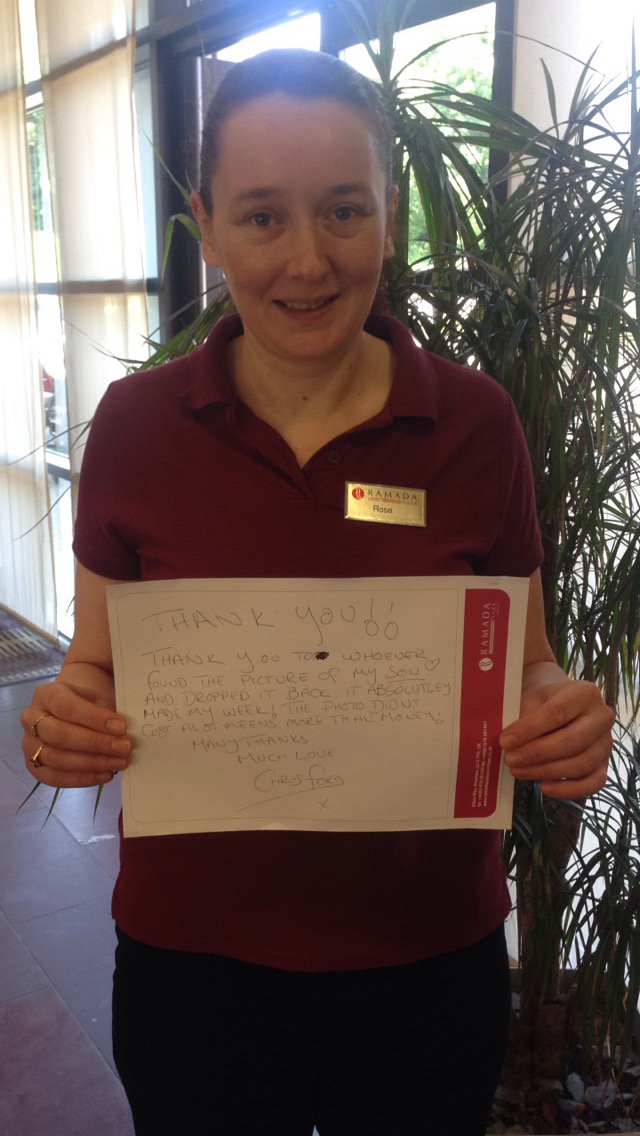 RAMADA
Rose
THANK YOU!!
THANK YOU TO WHOEVER
FOUND THE PICTURE OF MY SON ♡
AND DROPPED IT BACK. IT ABSOLUTLEY
MADE MY WEEK! THE PHOTO DIDN'T
COST ALOT MEENS MORE THAN MONEY!
MANY THANKS
MUCH LOVE
CHRIS FORD
X
RAMADA